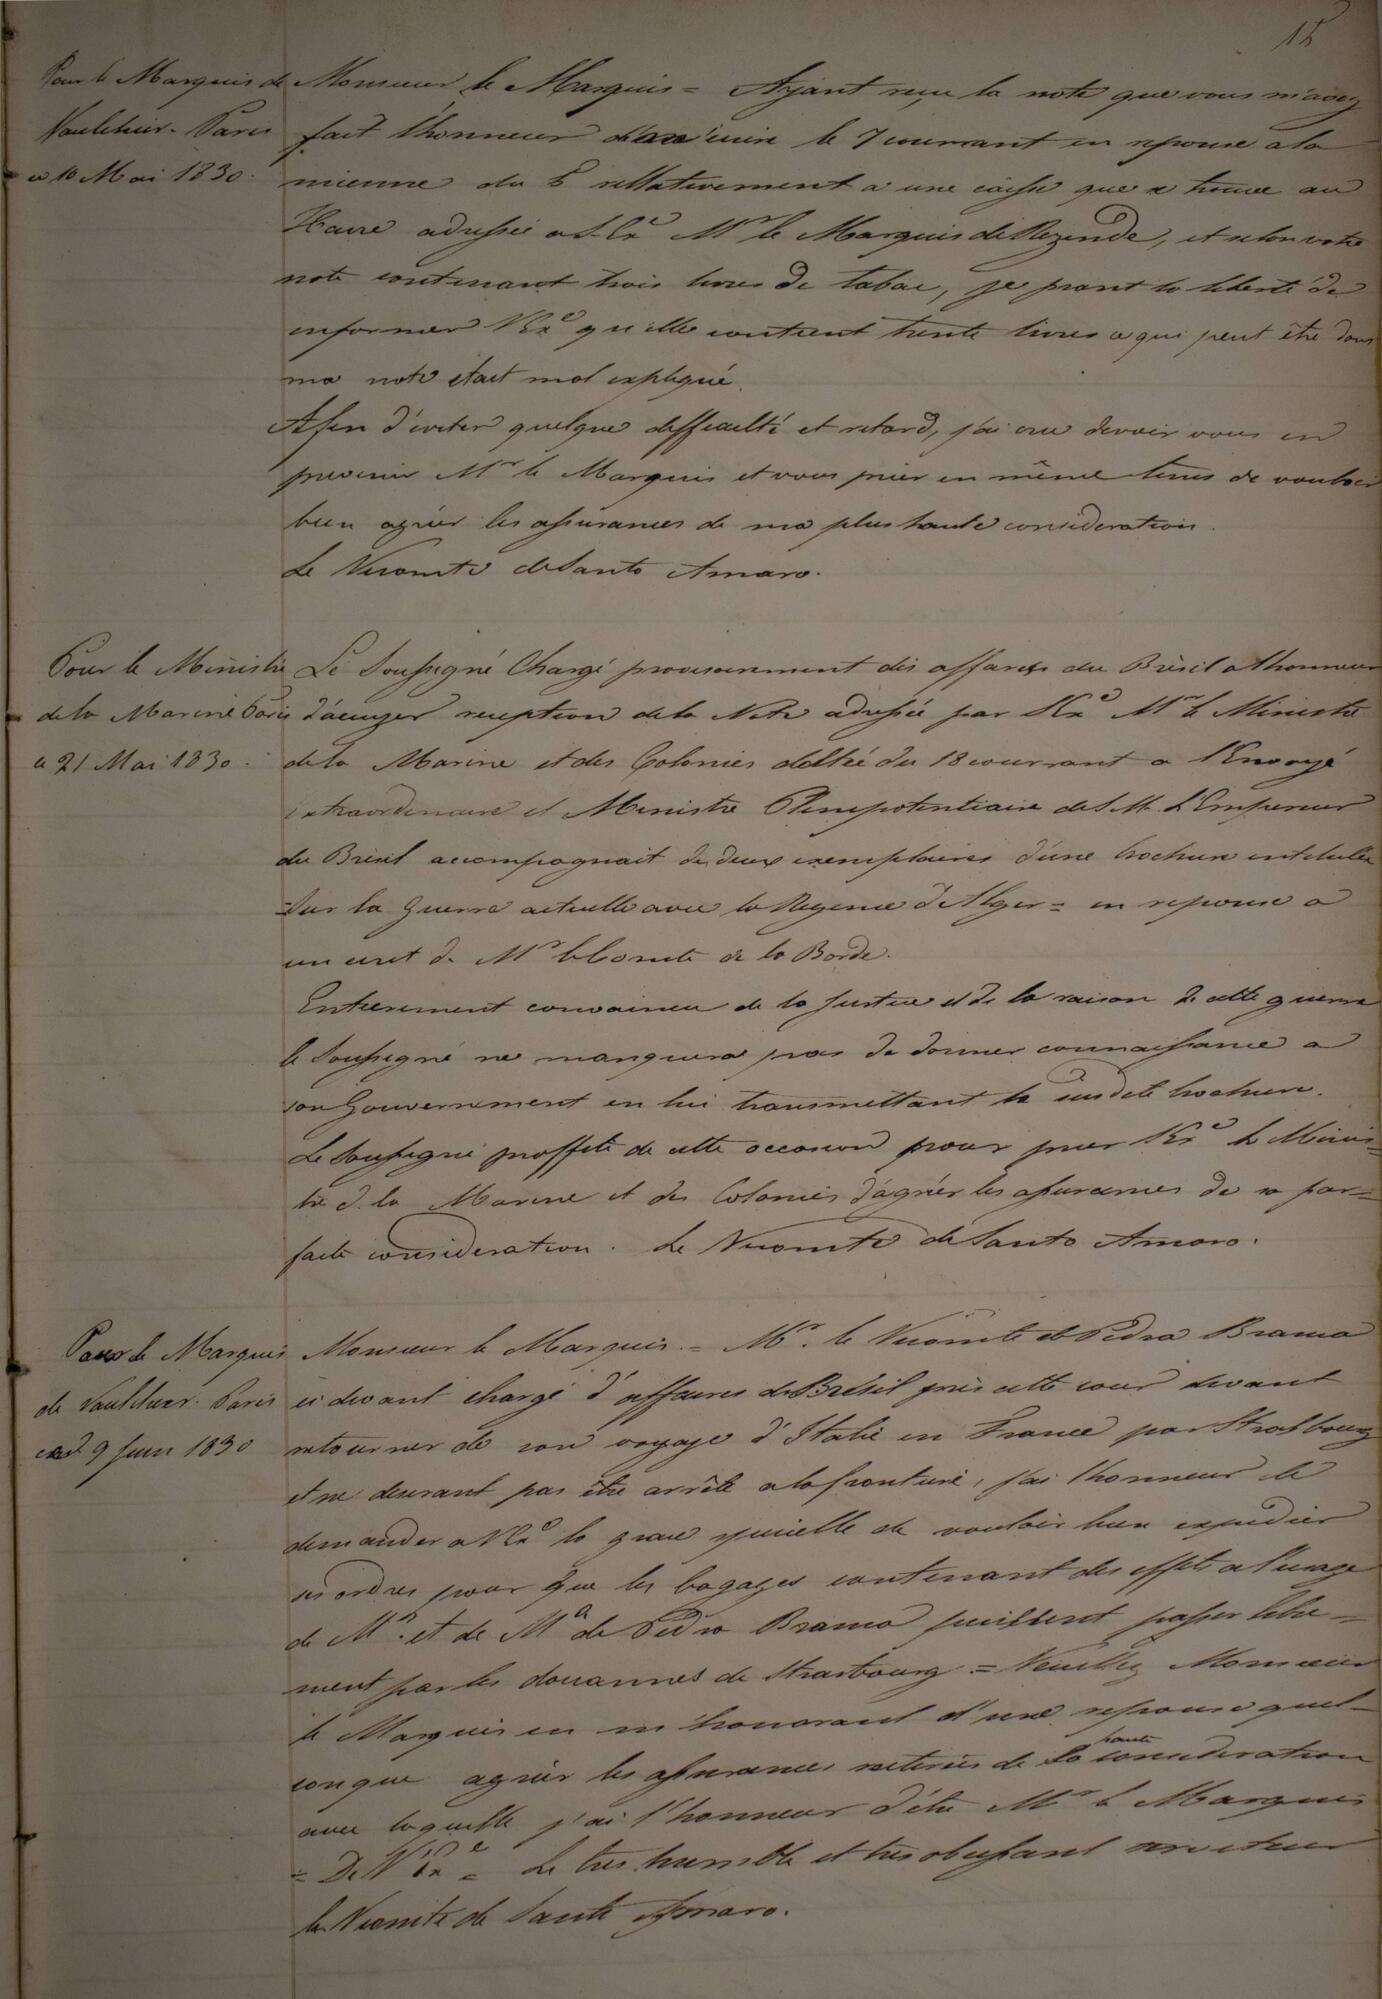 15
Pour le Marquis de
Vaulchier. Paris
ce 10 Mai 1830.
Monsieur le Marquis = Ayant reçu la note que vous m'avez
fait l'honneur d'écrire le 7 courrant en reponse a la
mienne du 5 rellativement a une caisse que se trouve au
Havre adressée a S. Exce Mr le Marquis de Rezende, et selon votre
note contenant trois livres de tabac, je prant la liberté de
informer V Exce qu'elle contient trente livres ce qui peut être dans
ma note etait mal expliqué.
Afin d'eviter quelque difficulté et retard, j'ai cru devoir vous en
prevenir Mr le Marquis et vous prier en même tems de vouloir
bien agréer les assurances de ma plus haute consideration.
Le Vicomte de Santo Amaro.
Pour le Ministre
de la Marine Paris
ce 21 Mai 1830.
Le Soussigné Chargé provisoirement des affaires du Brésil a l'honneur
d'acuzer reception de la Note adressée par S Exce Mr le Ministre
de la Marine et des Colonies dattée du 18 courrant a l'Envoyé
extraordinaire et Ministre Plenipotentiaire de S. M. L'Empereur
du Brésil accompagnait de deux exemplaires d'une brochure intitulée
= Sur la Guerre actuelle avec la Regence d'Alger = en reponse a
un ecrit de Mr le Comte de la Borde.
Entierement convaincu de la Justice et de la raison de cette guerre
le Soussigné ne manquera pas de donner connaissance a
son Gouvernement en lui transmettant la susdite brochure.
Le Soussigné proffite de cette occasion pour prier S Exce Le Minis=
tre de la Marine et des Colonies d'agréer les assurances de sa par=
faite consideration. Le Vicomte de Santo Amaro.
Pour le Marquis
de Vaulchier. Paris
9 Juin 1830
Monsieur le Marquis. = Mr. le Vicomte de Pedra Branca
ci devant chargé d'affaires du Brésil près cette cour devant
retourner de son voyage d'Italie en France par Strasbourg
et ne desirant pas être arrêté a la frontiere, j'ai l'honneur de
demander a V Exce la grace specielle de vouloir bien expedier
ses ordres pour que les bagages contenant des effets a l'usage
de Mr. et de Ma de Pedra Branca puissent passer libre=
ment par les douannes de Strasbourg. = Veuillez Monsieur
le Marquis en m'honorant d'une reponse quel=
conque agréer les assurances reiterées de la haute consideration
avec laquelle j'ai l'honneur d'être Mr le Marquis
= De V Exce = Le très humble et très obeissant serviteur
le Vicomte de Santo Amaro.